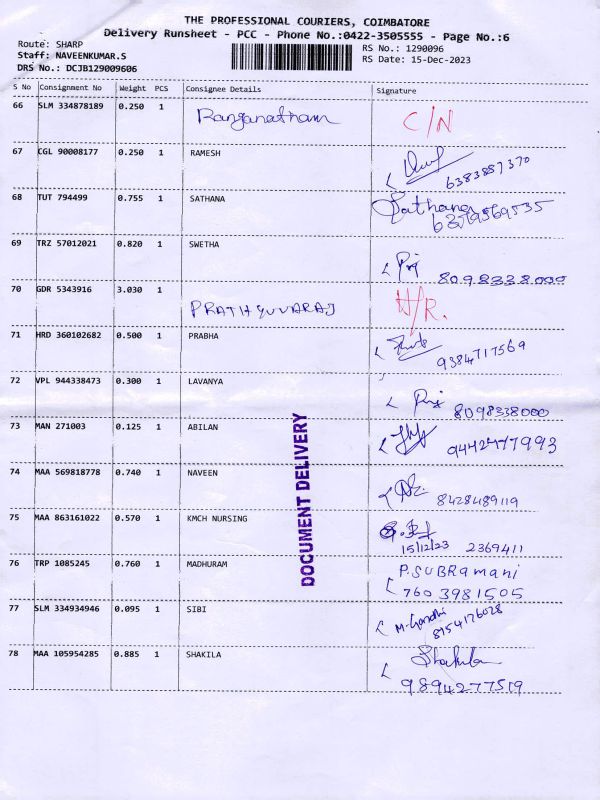 THE PROFESSIONAL COURIERS, COIMBATORE
Delivery Runsheet - PCC - Phone No.:0422-3505555 - Page No.:6
Route: SHARP
RS No.: 1290096
Staff: NAVEENKUMAR.S
RS Date: 15-Dec-2023
DRS No.: DCJB129009606
S No Consignment No Weight PCS Consignee Details Signature
66 SLM 334878189 0.250 1 Ranganatham C/N
67 CGL 90008177 0.250 1 RAMESH
6383887370
68 TUT 794499 0.755 1 SATHANA Sathana
6379569535
69 TRZ 57012021 0.820 1 SWETHA
8098338000
70 GDR 5343916 3.030 1 PRATHYUVARAJ H/R.
71 HRD 360102682 0.500 1 PRABHA
9384717569
72 VPL 944338473 0.300 1 LAVANYA
8098338000
73 MAN 271003 0.125 1 ABILAN
9442477993
74 MAA 569818778 0.740 1 NAVEEN
8428489119
75 MAA 863161022 0.570 1 KMCH NURSING
15/12/23 2369411
76 TRP 1085245 0.760 1 MADHURAM P.SUBRamani
7603981505
77 SLM 334934946 0.095 1 SIBI M.Gandhi
8754176028
78 MAA 105954285 0.885 1 SHAKILA Shakila
9894277519
DOCUMENT DELIVERY